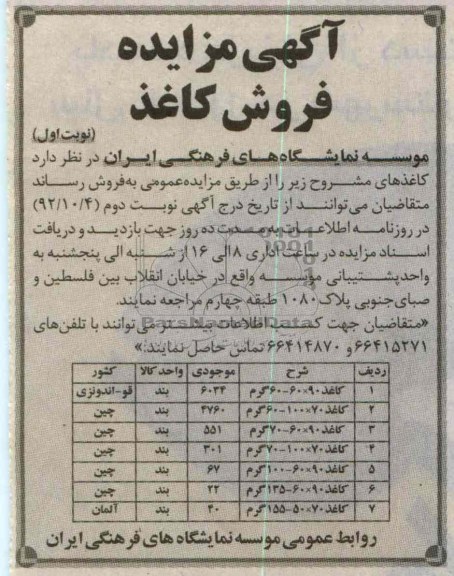 آگهی مزایده
فروش کاغذ
(نوبت اول)
موسسه نمایشگاه‌های فرهنگی ایران در نظر دارد
کاغذهای مشروح زیر را از طریق مزایده عمومی به‌فروش رساند
متقاضیان می‌توانند از تاریخ درج آگهی نوبت دوم (۹۲/۱۰/۴)
در روزنامه اطلاعات به‌مدت ده روز جهت بازدید و دریافت
اسناد مزایده در ساعت اداری ۸ الی ۱۶ از شنبه الی پنجشنبه به
واحد پشتیبانی موسسه واقع در خیابان انقلاب بین فلسطین و
صبای‌جنوبی پلاک ۱۰۸۰ طبقه چهارم مراجعه نمایند.
«متقاضیان جهت کسب اطلاعات بیشتر می‌توانند با تلفن‌های
۶۶۴۱۵۲۷۱ و ۶۶۴۱۴۸۷۰ تماس حاصل نمایند.»
ردیف شرح موجودی واحد کالا کشور
۱ کاغذ ۹۰×۶۰-۶۰گرم ۶۰۳۴ بند قو-اندونزی
۲ کاغذ ۷۰×۱۰۰-۶۰گرم ۴۷۶۰ بند چین
۳ کاغذ ۹۰×۶۰-۷۰گرم ۵۵۱ بند چین
۴ کاغذ ۷۰×۱۰۰-۷۰گرم ۳۰۱ بند چین
۵ کاغذ ۹۰×۶۰-۱۰۰گرم ۶۷ بند چین
۶ کاغذ ۹۰×۶۰-۱۳۵گرم ۲۲ بند چین
۷ کاغذ ۷۰×۵۰-۱۵۵گرم ۴۰ بند آلمان
روابط عمومی موسسه نمایشگاه های فرهنگی ایران